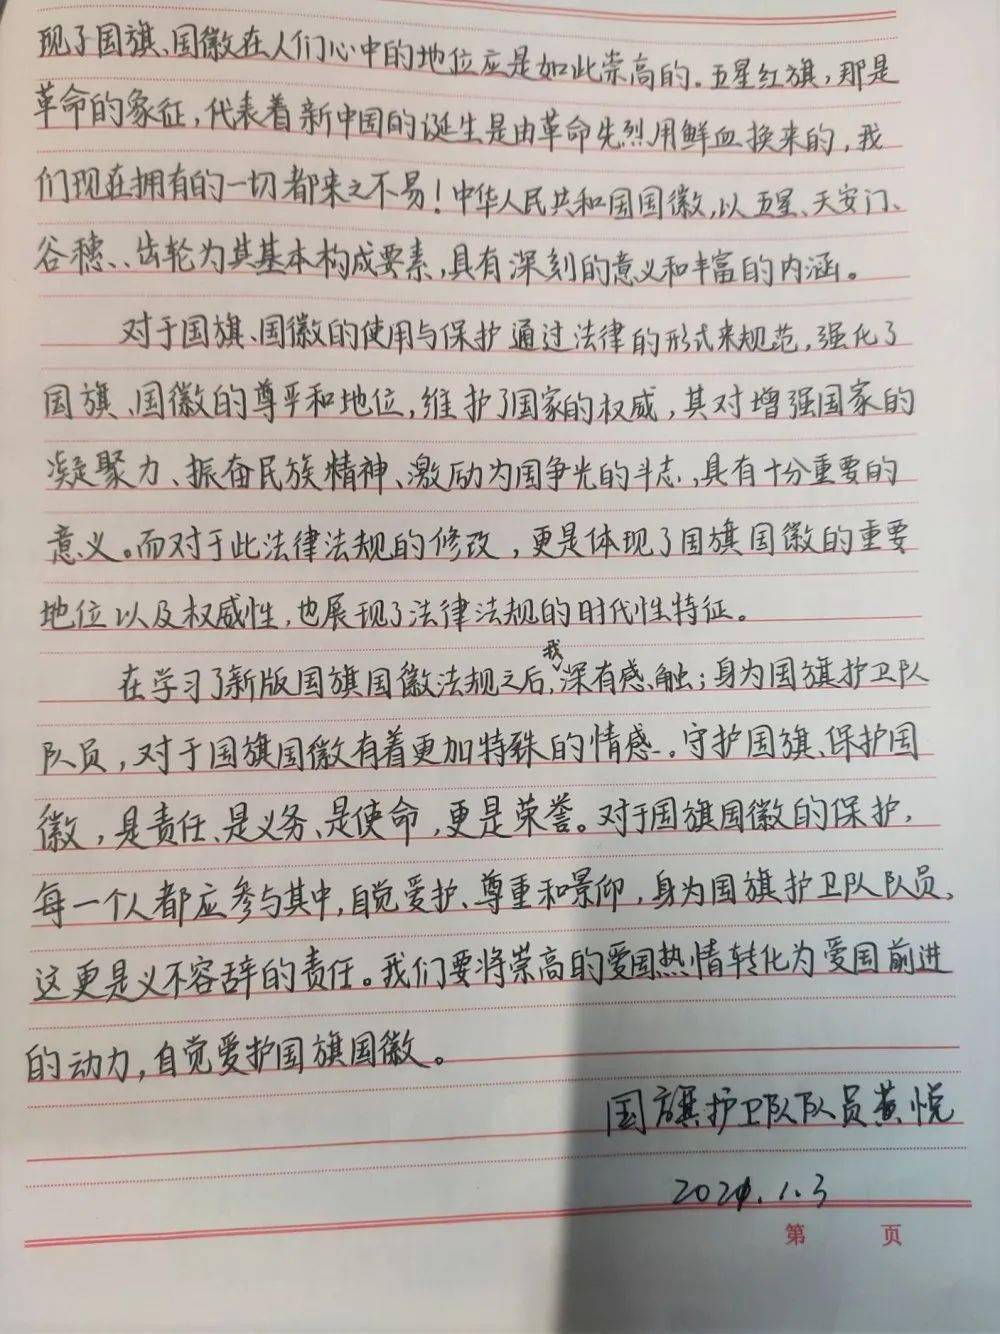 现了国旗、国徽在人们心中的地位应是如此崇高的。五星红旗，那是
革命的象征，代表着新中国的诞生是由革命先烈用鲜血换来的，我
们现在拥有的一切都来之不易！中华人民共和国国徽，以五星、天安门、
谷穗、、齿轮为其基本构成要素，具有深刻的意义和丰富的内涵。
对于国旗、国徽的使用与保护通过法律的形式来规范，强化了
国旗、国徽的尊严和地位，维护了国家的权威，其对增强国家的
凝聚力、振奋民族精神、激励为国争光的斗志，具有十分重要的
意义。而对于此法律法规的修改，更是体现了国旗国徽的重要
地位以及权威性，也展现了法律法规的时代性特征。
在学习了新版国旗国徽法规之后，我深有感触；身为国旗护卫队
队员，对于国旗国徽有着更加特殊的情感。守护国旗、保护国
徽，是责任、是义务、是使命，更是荣誉。对于国旗国徽的保护，
每一个人都应参与其中，自觉爱护、尊重和景仰，身为国旗护卫队队员，
这更是义不容辞的责任。我们要将崇高的爱国热情转化为爱国前进
的动力，自觉爱护国旗国徽。
国旗护卫队队员黄悦
2021.1.3
第 页